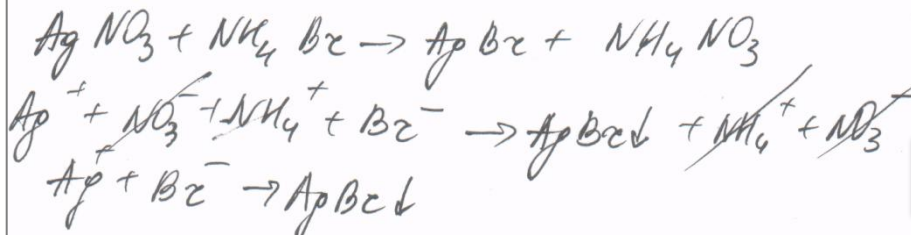 AgNO₃ + NH₄Br → AgBr + NH₄NO₃
Ag⁺ + NO₃⁻ + NH₄⁺ + Br⁻ → AgBr↓ + NH₄⁺ + NO₃⁻
Ag⁺ + Br⁻ → AgBr↓